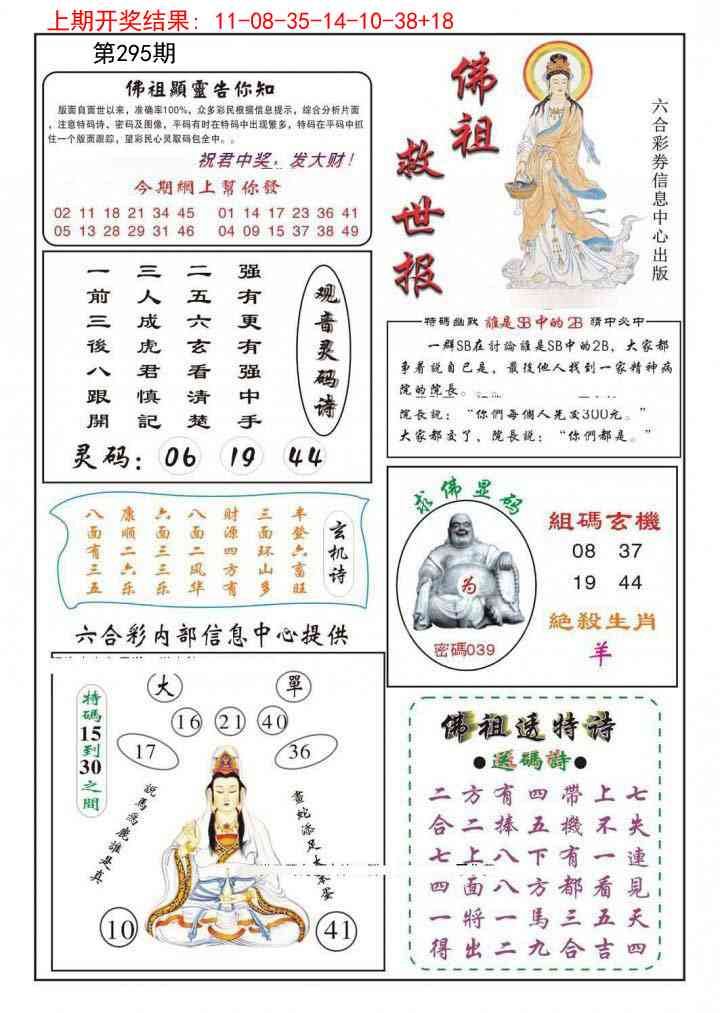 上期开奖结果：11-08-35-14-10-38+18
第295期
佛祖顯靈告你知
版面自面世以来，准确率100%，众多彩民根据信息提示，综合分析片面
，注意特码诗、密码及图像，平码有时在特码中出现繁多，特码在平码中抓
住一个版面跟踪，望彩民心灵取码包全中。。
祝君中奖，发大财！
今期網上幫你發
02 11 18 21 34 45
01 14 17 23 36 41
05 13 28 29 31 46
04 09 15 37 38 49
佛祖
救世报
六合彩券信息中心出版
观音灵码诗
强有更有强中手
二五六玄看清楚
三人成虎君慎記
一前三後八跟開
灵码：06 19 44
特碼幽默 誰是SB中的2B 猜中必中
一群SB在討論誰是SB中的2B，大家都
爭着説自己是，最後他人找到一家精神病
院的院長。
院長説：“你們每個人先交300元。”
大家都交了，院長説：“你們都是。”
玄机诗
丰登六畜旺
三面环山多
财源四方有
八面二风华
六三三乐
康順二六乐
八面有三五
求佛显码
为
密碼039
組碼玄機
08 37
19 44
絕殺生肖
羊
六合彩内部信息中心提供
特碼15到30之間
大 單
16 21 40
17 36
説馬為鹿誰是真
畫蛇添足大笨蛋
10 41
佛祖透特诗
●送碼詩●
二方有四帶上七
合二捧五機不失
七上八下有一連
四面八方都看見
一將一馬三五天
得出二九合吉四